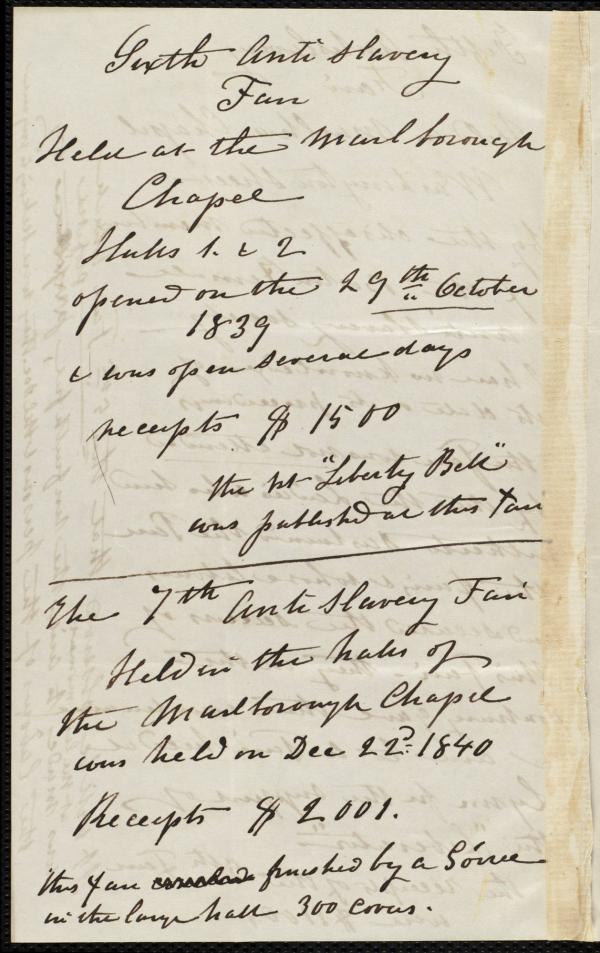 Sixth Anti Slavery
Fair
Held at the Marlborough
Chapel
Halls 1. & 2
opened on the 29th October
1839
& was open several days
receipts $ 1500
the 1st "Liberty Bell"
was published at this Fair
The 7th Anti Slavery Fair
Held in the halls of
the Marlborough Chapel
was held on Dec 22d. 1840
Receipts $ 2001.
this Fair finished by a Soiree
in the large hall 300 covers.